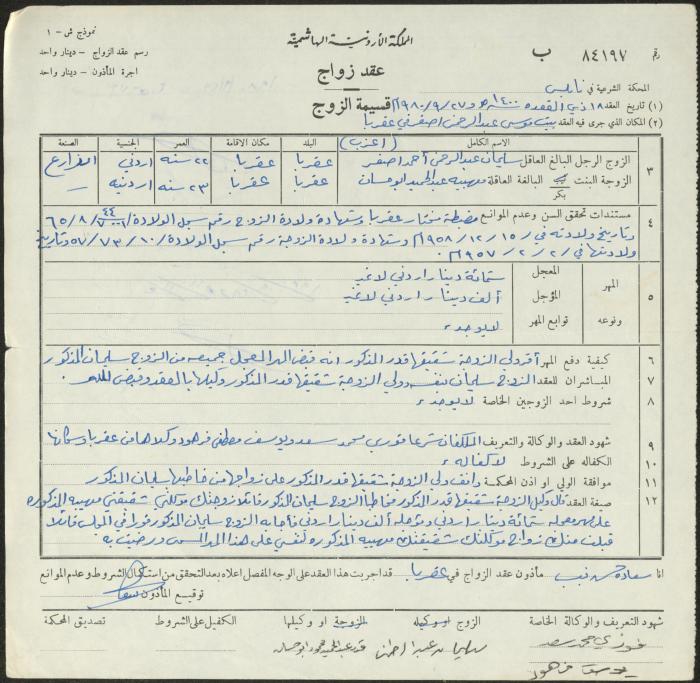 نموذج ش - ١
رسم عقد الزواج - دينار واحد
اجرة المأذون - دينار واحد
المملكة الأردنية الهاشمية
عقد زواج
قسيمة الزوج
رقم ٨٤١٩٧ ب
المحكمة الشرعية في نابلس
(١) تاريخ العقد ١٨ ذي القعدة ١٤٠٠هـ ٢٧/٩/١٩٨٠م
(٢) المكان الذي جرى فيه العقد بيت موسى عبدالرحمن اصفر في عقربا
الاسم الكامل (اعزب) البلد مكان الاقامة العمر الجنسية الصنعة
٣ الزوج الرجل البالغ العاقل سليمان عبدالرحمن أحمد اصفر عقربا عقربا ٢٢ سنه اردني
الزوجة البنت بكر البالغة العاقلة مهيبه عبدالحميد عقربا عقربا ٢٣ سنه اردنيه —
٤ مستندات تحقق السن وعدم الموانع مضبطة مختار عقربا وشهادة ولادة الزوج رقم سجل الولادة
وتاريخ ولادته في ١٥/١٢/١٩٥٨م وشهادة ولادة الزوجة رقم سجل الولادة ١٠/٧٣/٥٧ وتاريخ
ولادتها في ٢/٢/١٩٥٧م
٥ المهر ونوعه
المعجل ستمائة دينار اردني لا غير
المؤجل ألف دينار اردني لا غير
توابع المهر لا يوجد
٦ كيفية دفع المهر أقر ولي الزوجة شقيقها قدر المذكور انه قبض المهر المعجل جميعه من الزوج سليمان المذكور
٧ المباشران للعقد الزوج سليمان بنفسه وولي الزوجة شقيقها قدر المذكور وكيلها بالعقد وقبض المهر
٨ شروط احد الزوجين الخاصة لا يوجد
٩ شهود العقد والوكالة والتعريف المكلفان شرعا فوزي محمد سعد ويوسف مصطفى فرهود وكلاهما من عقربا وسكانها
١٠ الكفاله على الشروط لا كفاله
١١ موافقة الولي او اذن المحكمة وافق ولي الزوجة شقيقها قدر المذكور على زواجها من خاطبها سليمان المذكور
١٢ صيغة العقد قال وكيل الزوجة شقيقها قدر المذكور مخاطبا الزوج سليمان المذكور قائلا زوجتك موكلتي شقيقتي مهيبه المذكوره
على مهر معجله ستمائة دينار اردني ومؤجله ألف دينار اردني فأجابه الزوج سليمان المذكور فورا في المجلس قائلا
قبلت منك زواج موكلتك شقيقتك مهيبه المذكوره لنفسي على هذا المهر المسمى ورضيت به
انا سعاده حسن مأذون عقد الزواج في عقربا قد اجريت هذا العقد على الوجه المفصل اعلاه بعد التحقق من استكمال الشروط وعدم الموانع
توقيع المأذون
شهود التعريف والوكالة الخاصة الزوج او وكيله الزوجة او وكيلها الكفيل على الشروط تصديق المحكمة
فوزي محمد سعد سليمان عبدالرحمن قدر عبدالحميد
يوسف فرهود